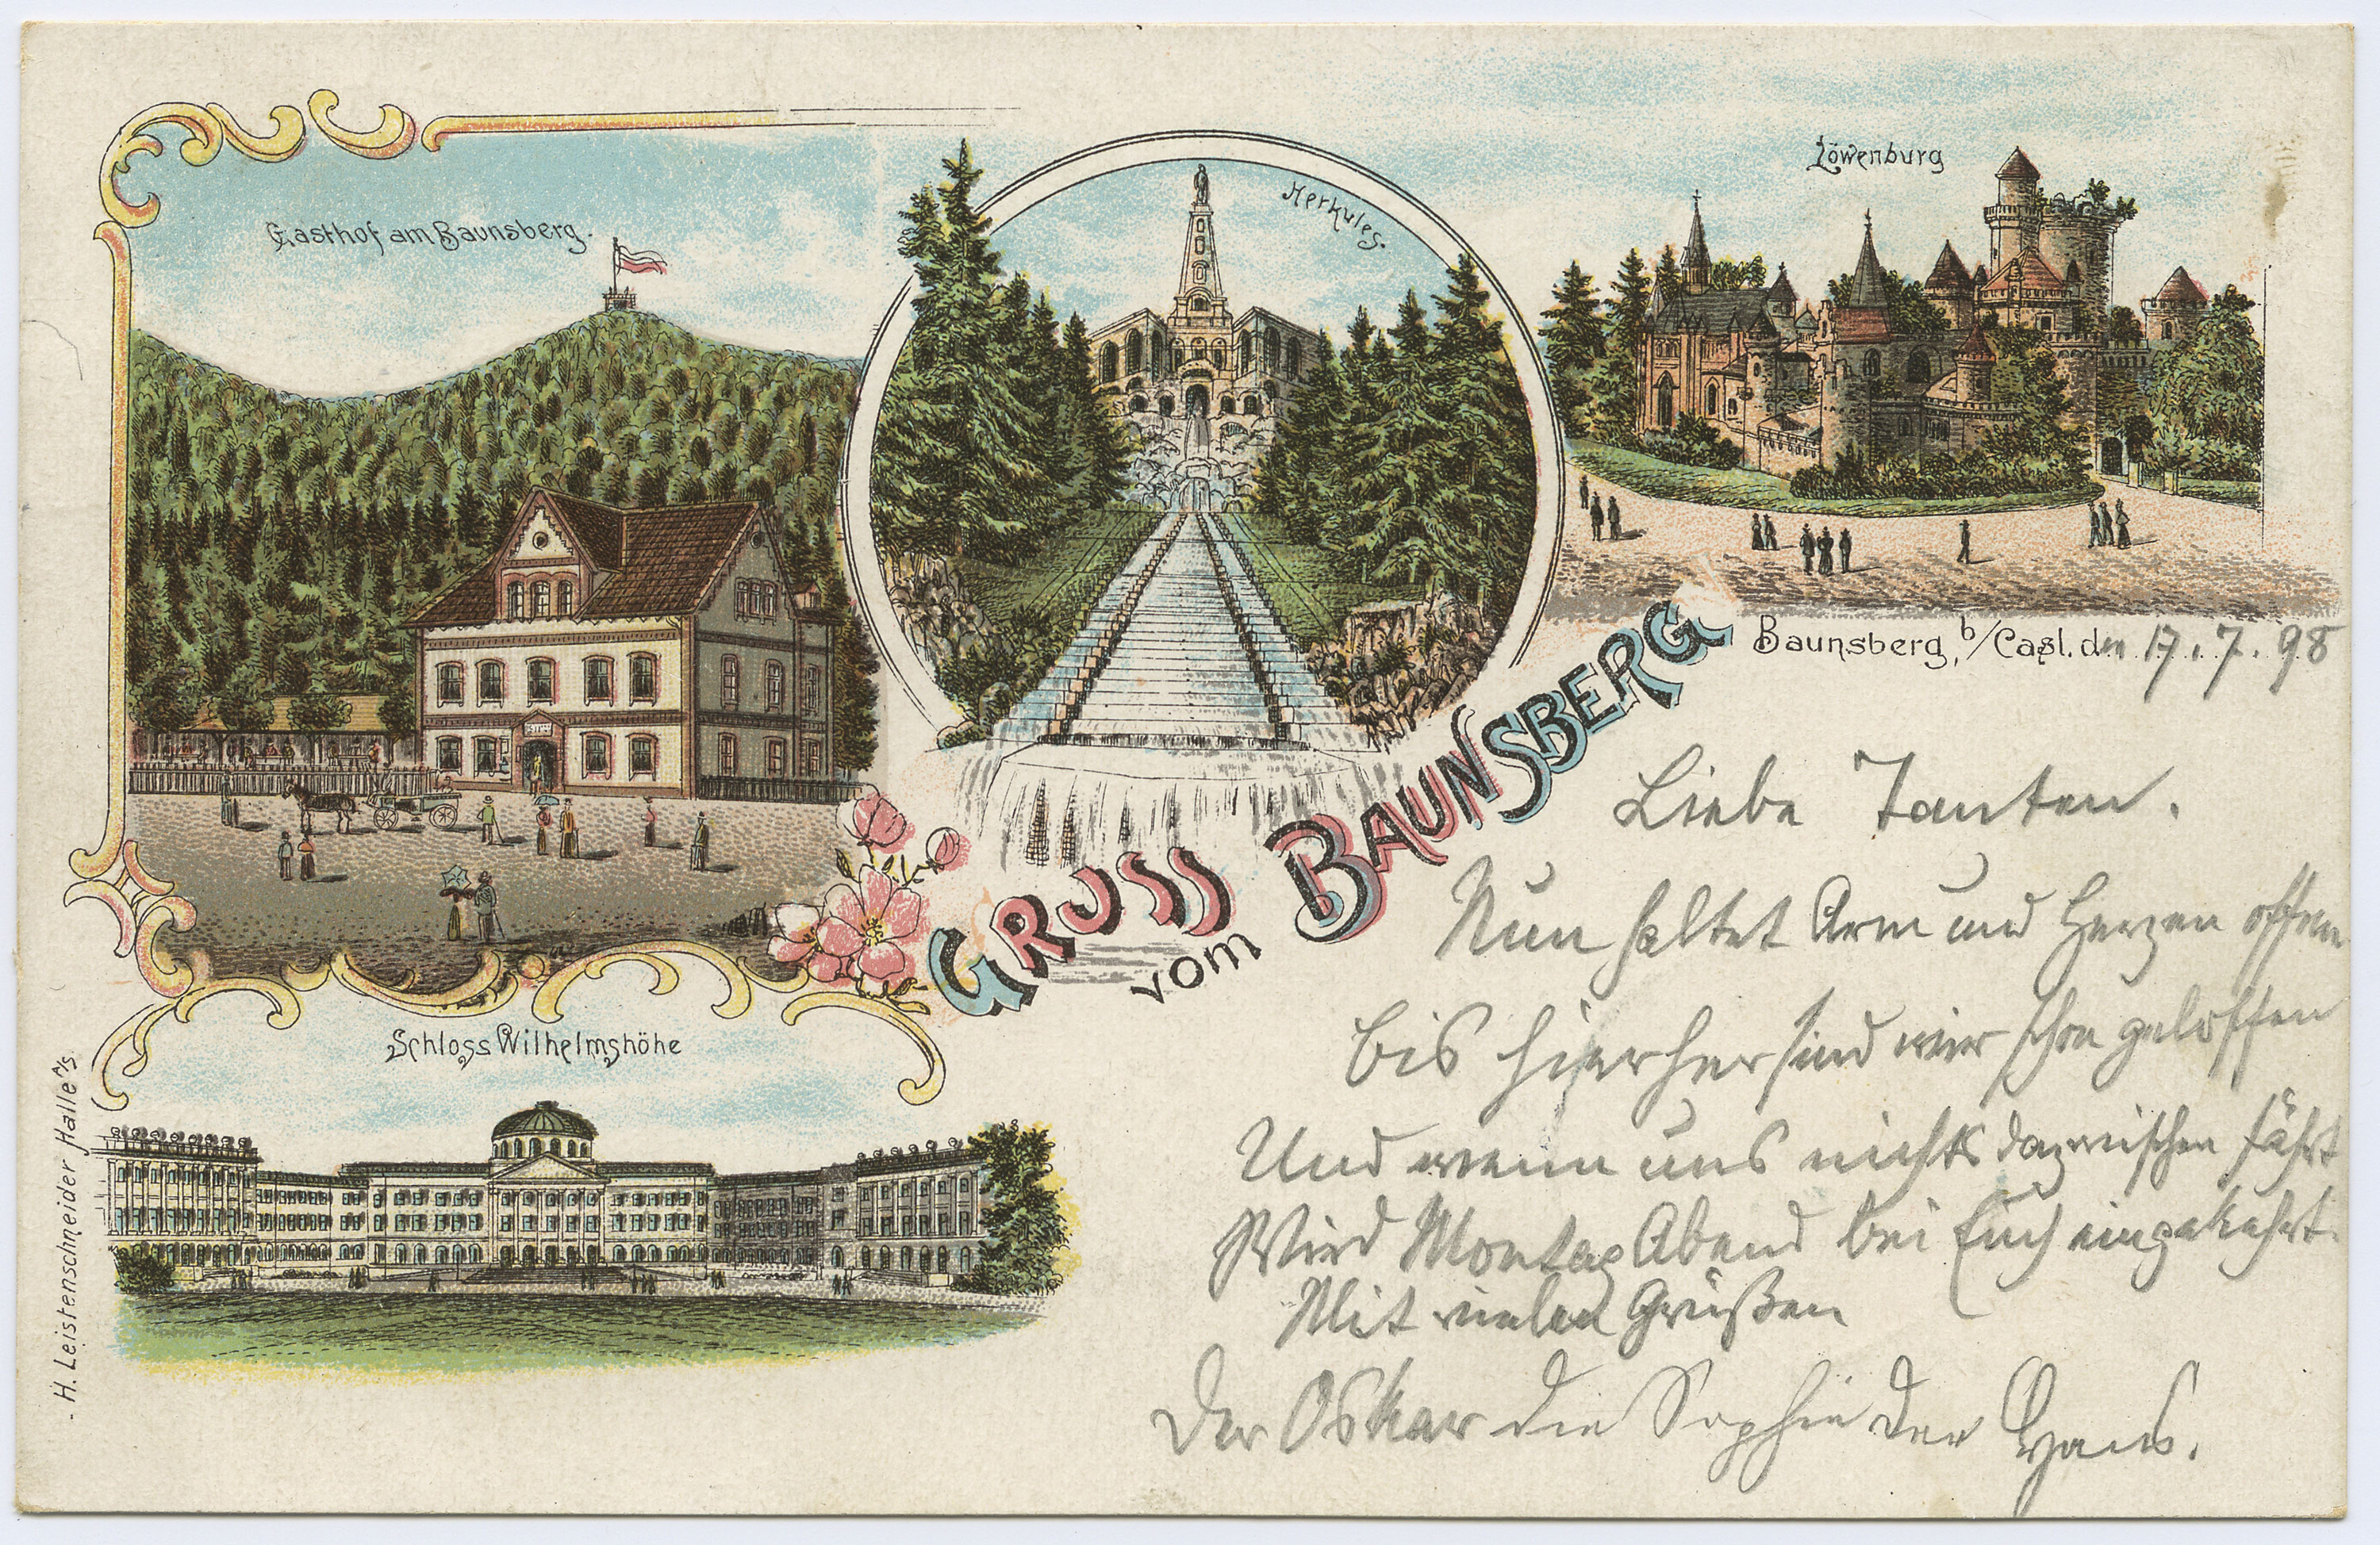 Gasthof am Baunsberg.
Herkules.
Löwenburg
Baunsberg, b/Casl. den 17.7.98
GRUSS
vom BAUNSBERG
Schloss Wilhelmshöhe
- H. Leistenschneider Halle a/s.
Liebe Tanten.
Nun haltet Arm und Herzen offen
bis hierher sind wir schon geloffen
Und wenn uns nichts dazwischen fährt
Wird Montag Abend bei Euch eingekehrt.
Mit vielen Grüßen
Der Oskar die Sophie der Hans.